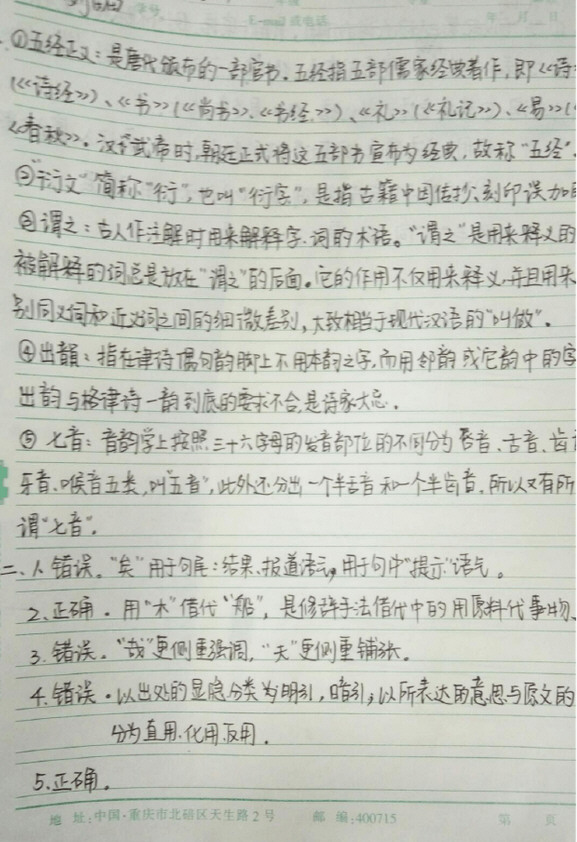 学号
E-mail或电话 年 月 日
①五经正义：是唐代颁布的一部官书。五经指五部儒家经典著作，即《诗
(《诗经》)、《书》(《尚书》、《书经》)、《礼》(《礼记》)、《易》(
《春秋》。汉武帝时，朝廷正式将这五部书宣布为经典，故称"五经"。
②"衍文"简称"衍"，也叫"衍字"，是指古籍中因传抄、刻印误加
③谓之：古人作注解时用来解释字、词的术语。"谓之"是用来释义的
被解释的词总是放在"谓之"的后面。它的作用不仅用来释义，并且用来
别同义词和近义词之间的细微差别，大致相当于现代汉语的"叫做"。
④出韻：指在律诗偶句韵脚上不用本韵之字，而用邻韵或它韵中的字
出韵与格律诗一韵到底的要求不合，是诗家大忌。
⑤七音：音韵学上按照三十六字母的发音部位的不同分为唇音、舌音、齿
牙音、喉音五类，叫"五音"，此外还分出一个半舌音和一个半齿音，所以又有所
谓"七音"。
二、1.错误。"矣"用于句尾：结果、报道语气，用于句中"提示"语气。
2.正确。用"木"借代"船"，是修辞手法借代中的用原料代事物。
3.错误。"哉"更侧重强调，"夫"更侧重铺张。
4.错误。以出处的显隐分类为明引，暗引；以所表达的意思与原文的
分为直用、化用、反用。
5.正确。
地 址:中国·重庆市北碚区天生路2号 邮 编:400715 第 页